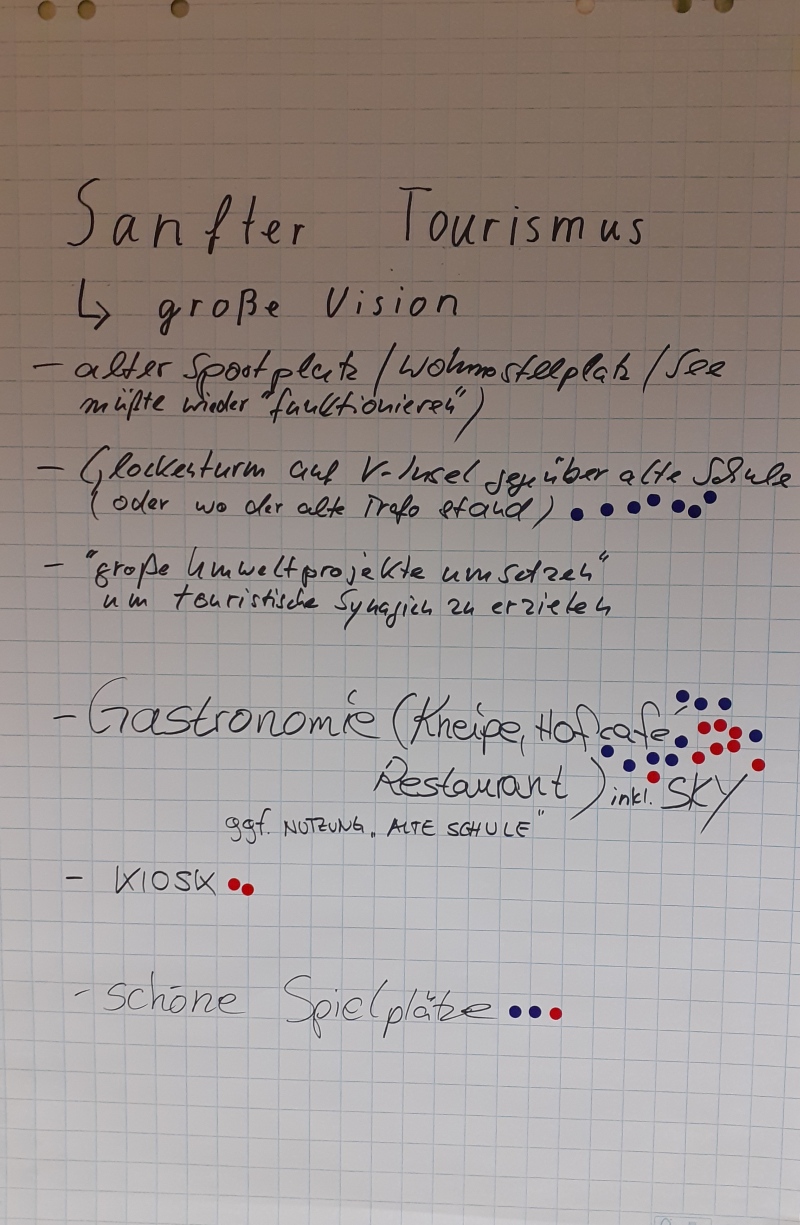 Sanfter Tourismus
↳ große Vision
- alter Sportplatz / Wohmostellplatz / See
müßte wieder "funktionieren")
- Glockenturm auf V-Insel gegenüber alte Schule
(oder wo der alte Trafo stand)
- "große Umweltprojekte umsetzen"
um touristische Synagien zu erzielen
- Gastronomie (Kneipe, Hofcafé,
Restaurant) inkl. SKY
ggf. NUTZUNG „ALTE SCHULE"
- KIOSK
- schöne Spielplätze